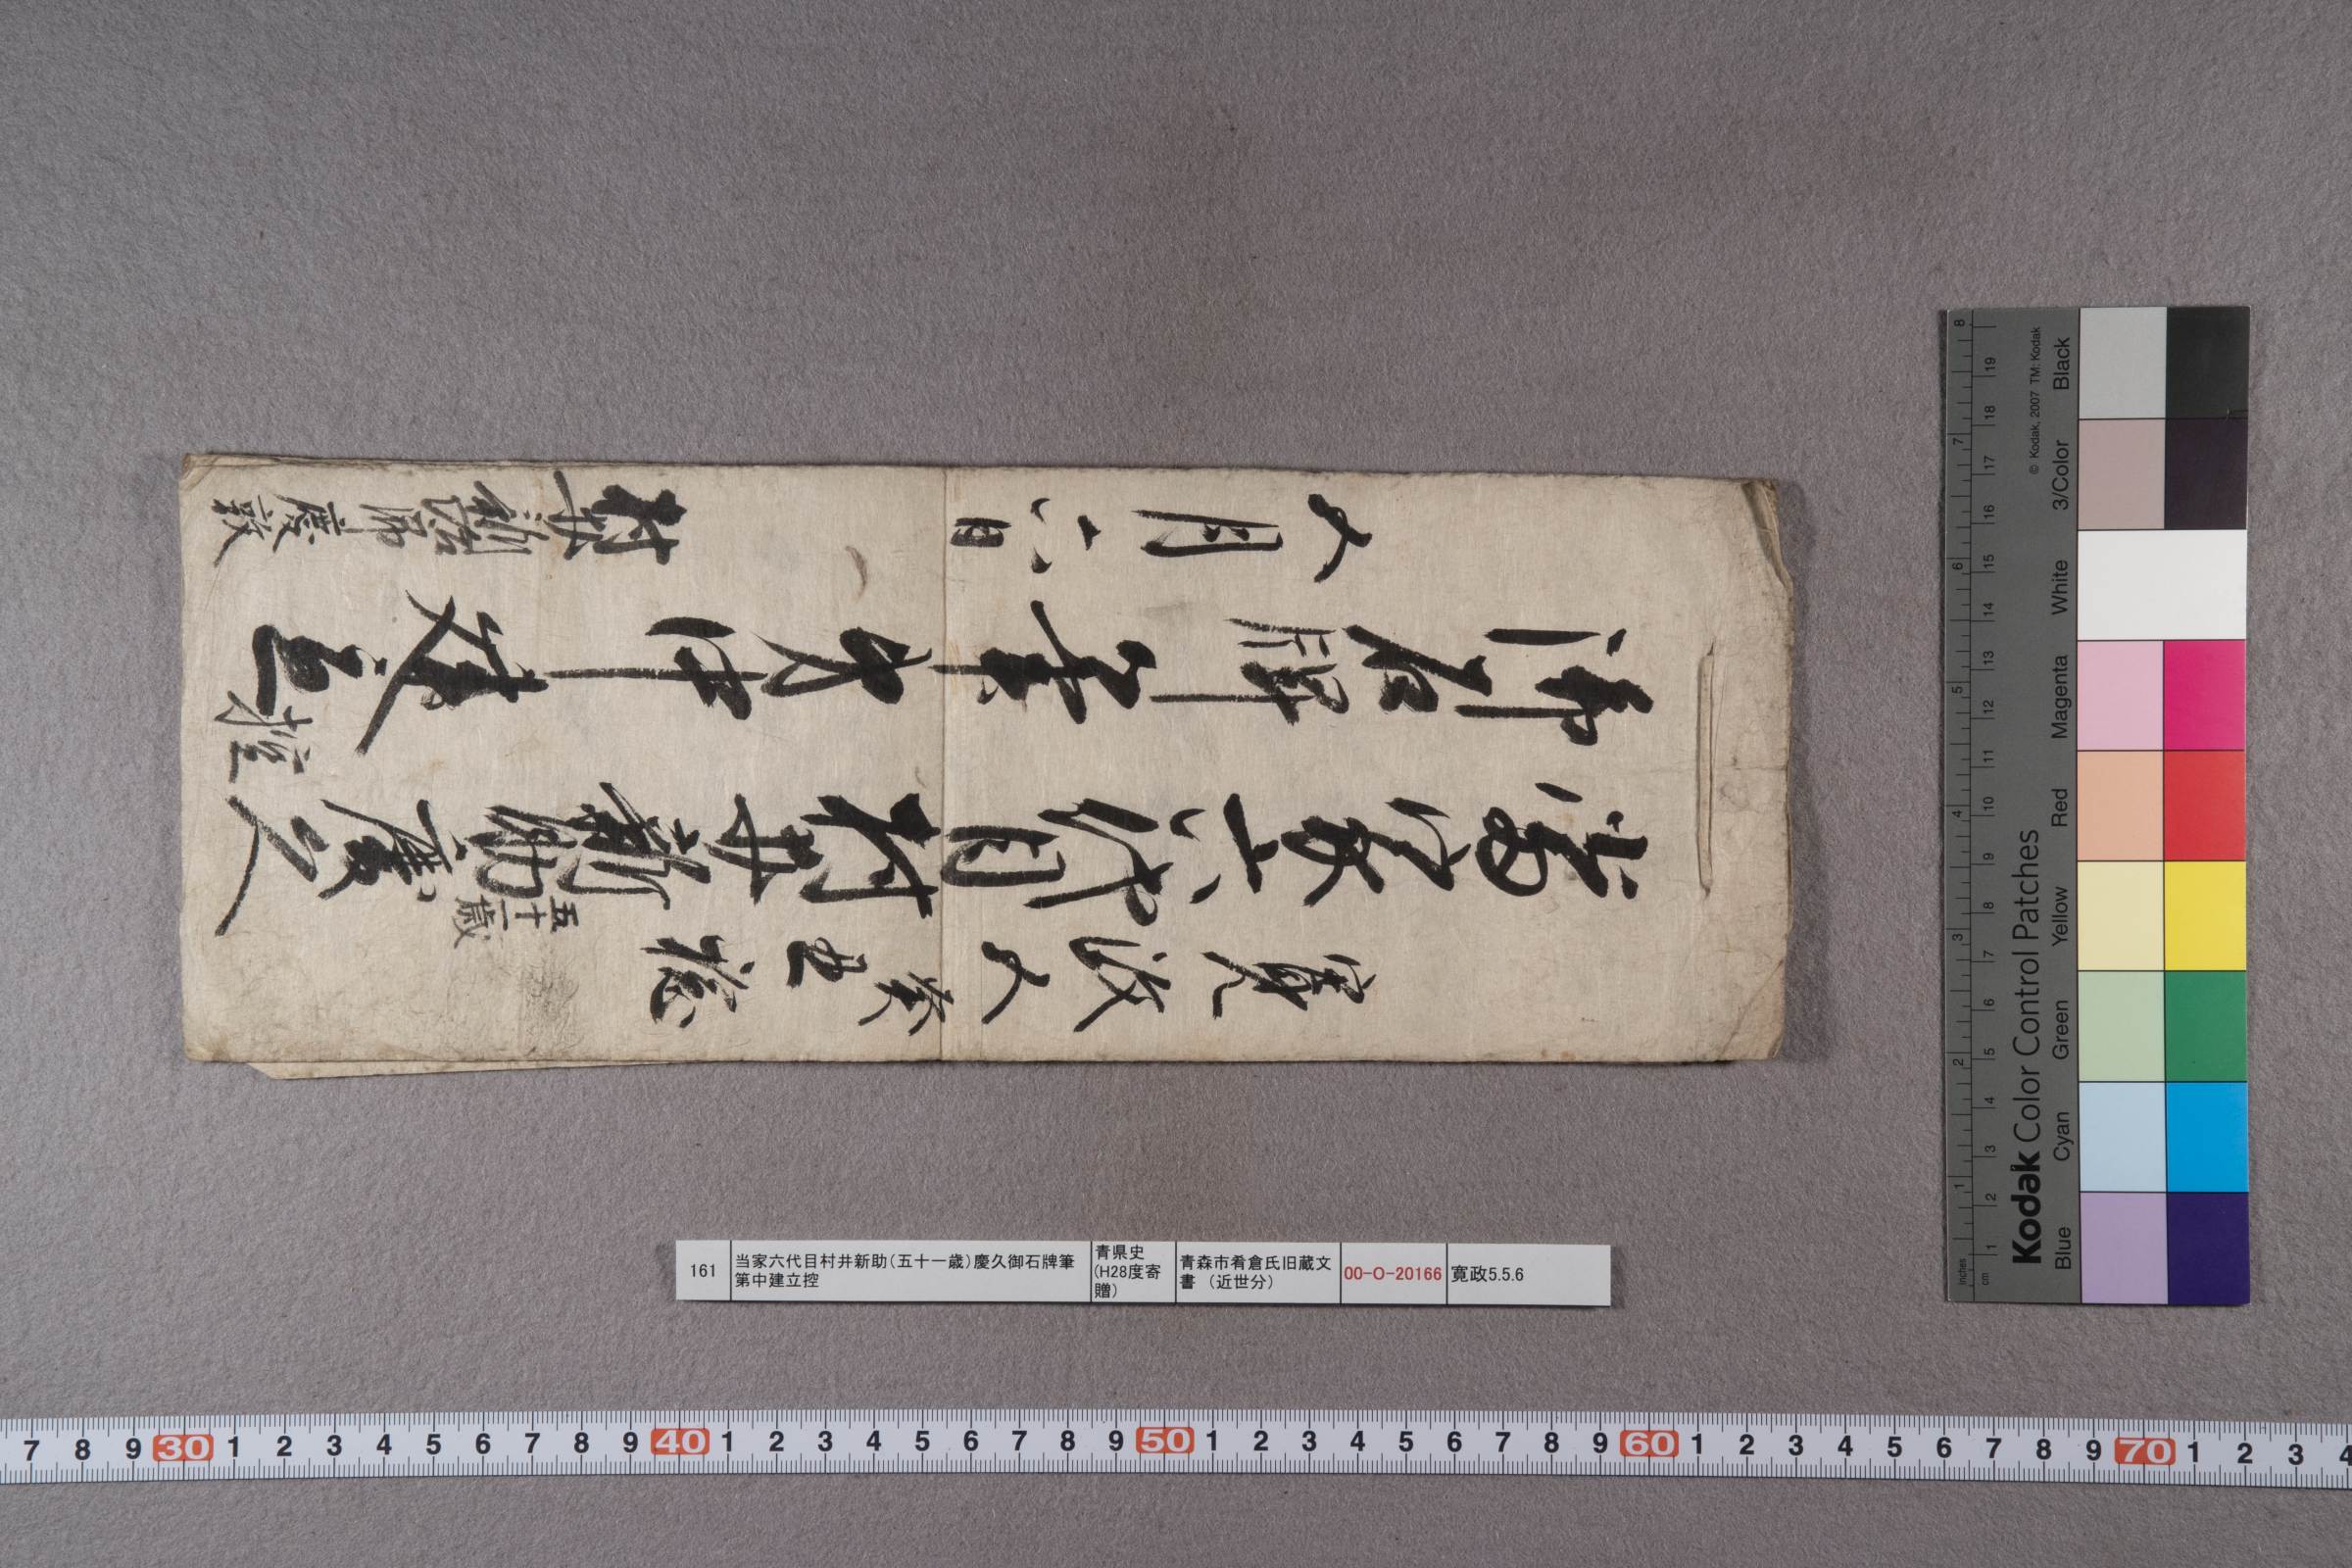 寛政五癸丑歳
當家六代目村井新助五十一歳慶久
御石牌筆弟中建立控
五月六日
村井新
161
当家六代目村井新助(五十一歳)慶久御石牌筆
第中建立控
青県史
(H28度寄
贈)
青森市肴倉氏旧蔵文
書 (近世分)
00-O-20166
寛政5.5.6
Kodak Color Control Patches
© Kodak, 2007 TM: Kodak
Blue Cyan Green Yellow Red Magenta White 3/Color Black
inches 1 2 3 4 5 6 7 8
cm 1 2 3 4 5 6 7 8 9 10 11 12 13 14 15 16 17 18 19
7 8 9 30 1 2 3 4 5 6 7 8 9 40 1 2 3 4 5 6 7 8 9 50 1 2 3 4 5 6 7 8 9 60 1 2 3 4 5 6 7 8 9 70 1 2 3 4